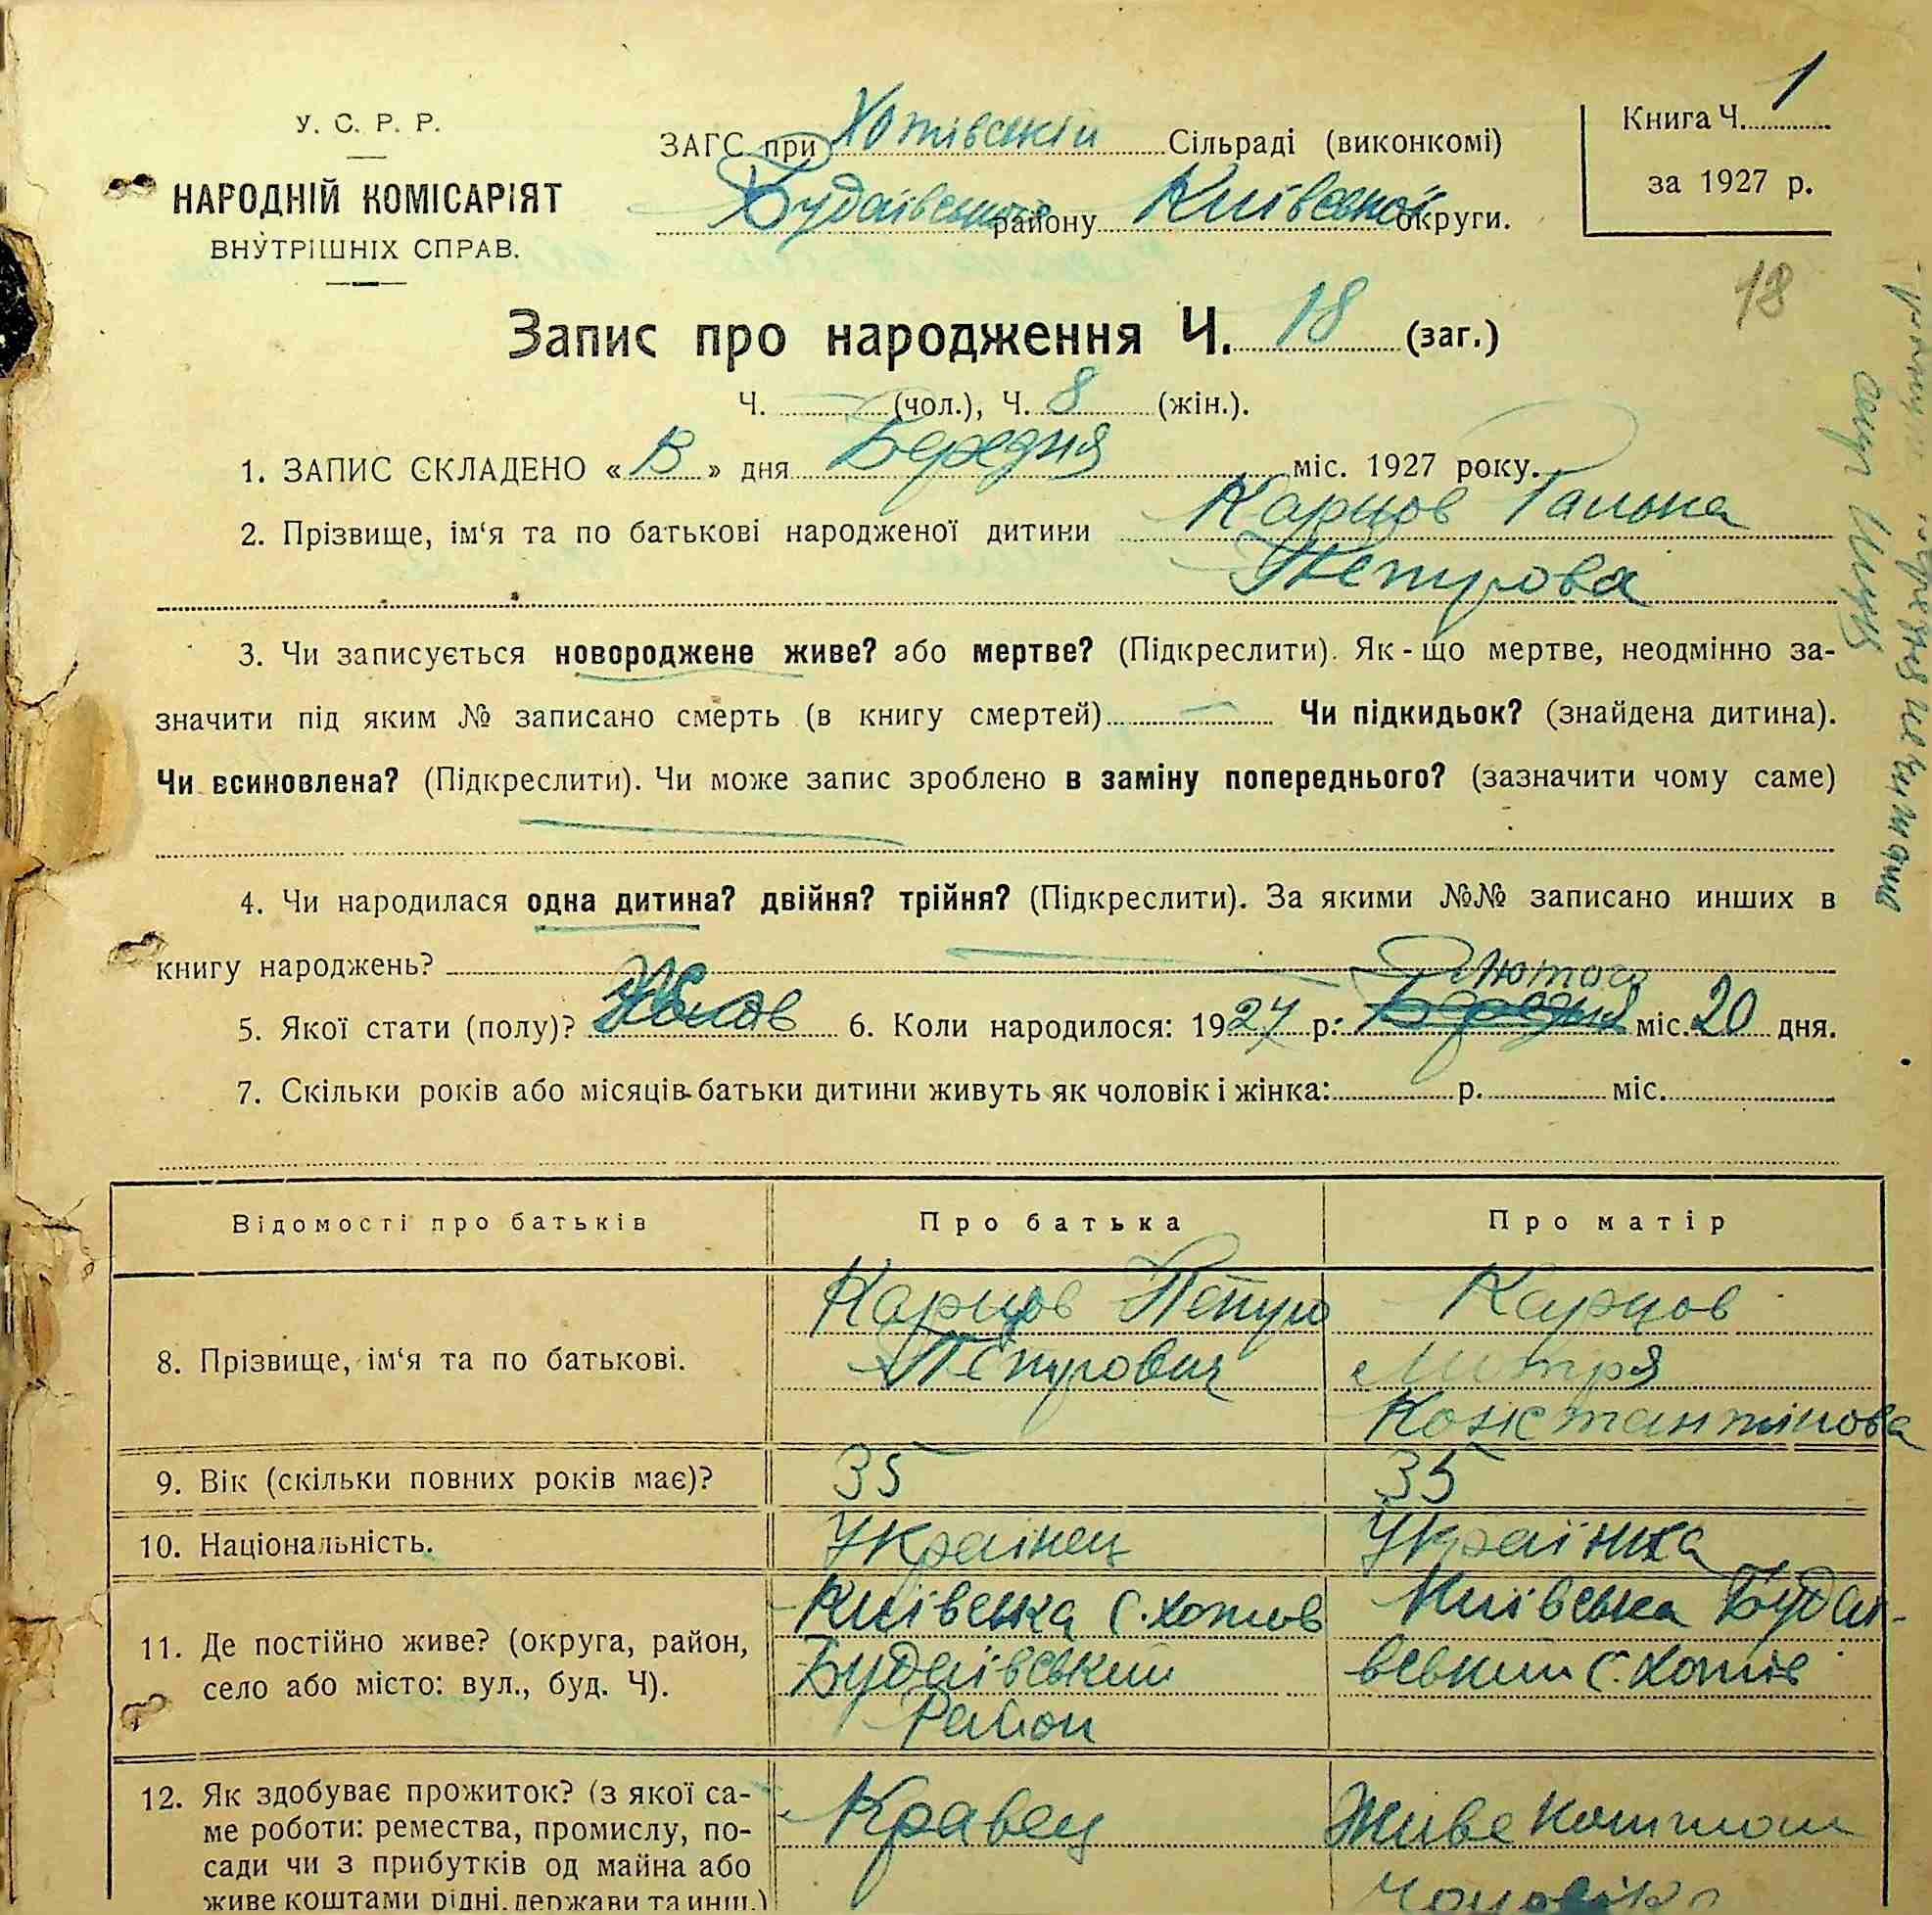 У. С. Р. Р.
НАРОДНІЙ КОМІСАРІЯТ
ВНУТРІШНІХ СПРАВ.
ЗАГС при Хотівській Сільраді (виконкомі)
Будаївського району Київської округи.
Книга Ч. 1
за 1927 р.
18
Запис про народження Ч. 18 (заг.)
Ч. — (чол.), Ч. 8 (жін.).
1. ЗАПИС СКЛАДЕНО « » дня Березня міс. 1927 року.
2. Прізвище, ім‘я та по батькові народженої дитини Карцов
Петрова
3. Чи записується новороджене живе? або мертве? (Підкреслити). Як-що мертве, неодмінно за-
значити під яким № записано смерть (в книгу смертей) — Чи підкидьок? (знайдена дитина).
Чи всиновлена? (Підкреслити). Чи може запис зроблено в заміну попереднього? (зазначити чому саме)
4. Чи народилася одна дитина? двійня? трійня? (Підкреслити). За якими №№ записано инших в
книгу народжень?
Лютого
5. Якої стати (полу)? 6. Коли народилося: 1927 р. Березня міс. 20 дня.
7. Скільки років або місяців батьки дитини живуть як чоловік і жінка: р. міс.
Відомості про батьків Про батька Про матір
8. Прізвище, ім‘я та по батькові.
Карцов Петро
Петрович
Карцов
Констянтінова
9. Вік (скільки повних років має)? 35 35
10. Національність. Українец Українка
11. Де постійно живе? (округа, район,
село або місто: вул., буд. Ч).
Київська С. Хотов
Будаївський
Район
Київська Будаї-
вський С. Хотів
12. Як здобуває прожиток? (з якої са-
ме роботи: ремества, промислу, по-
сади чи з прибутків од майна або
живе коштами рідні, держави та инш.)
Кравец
Живе коштом
Чоловіка